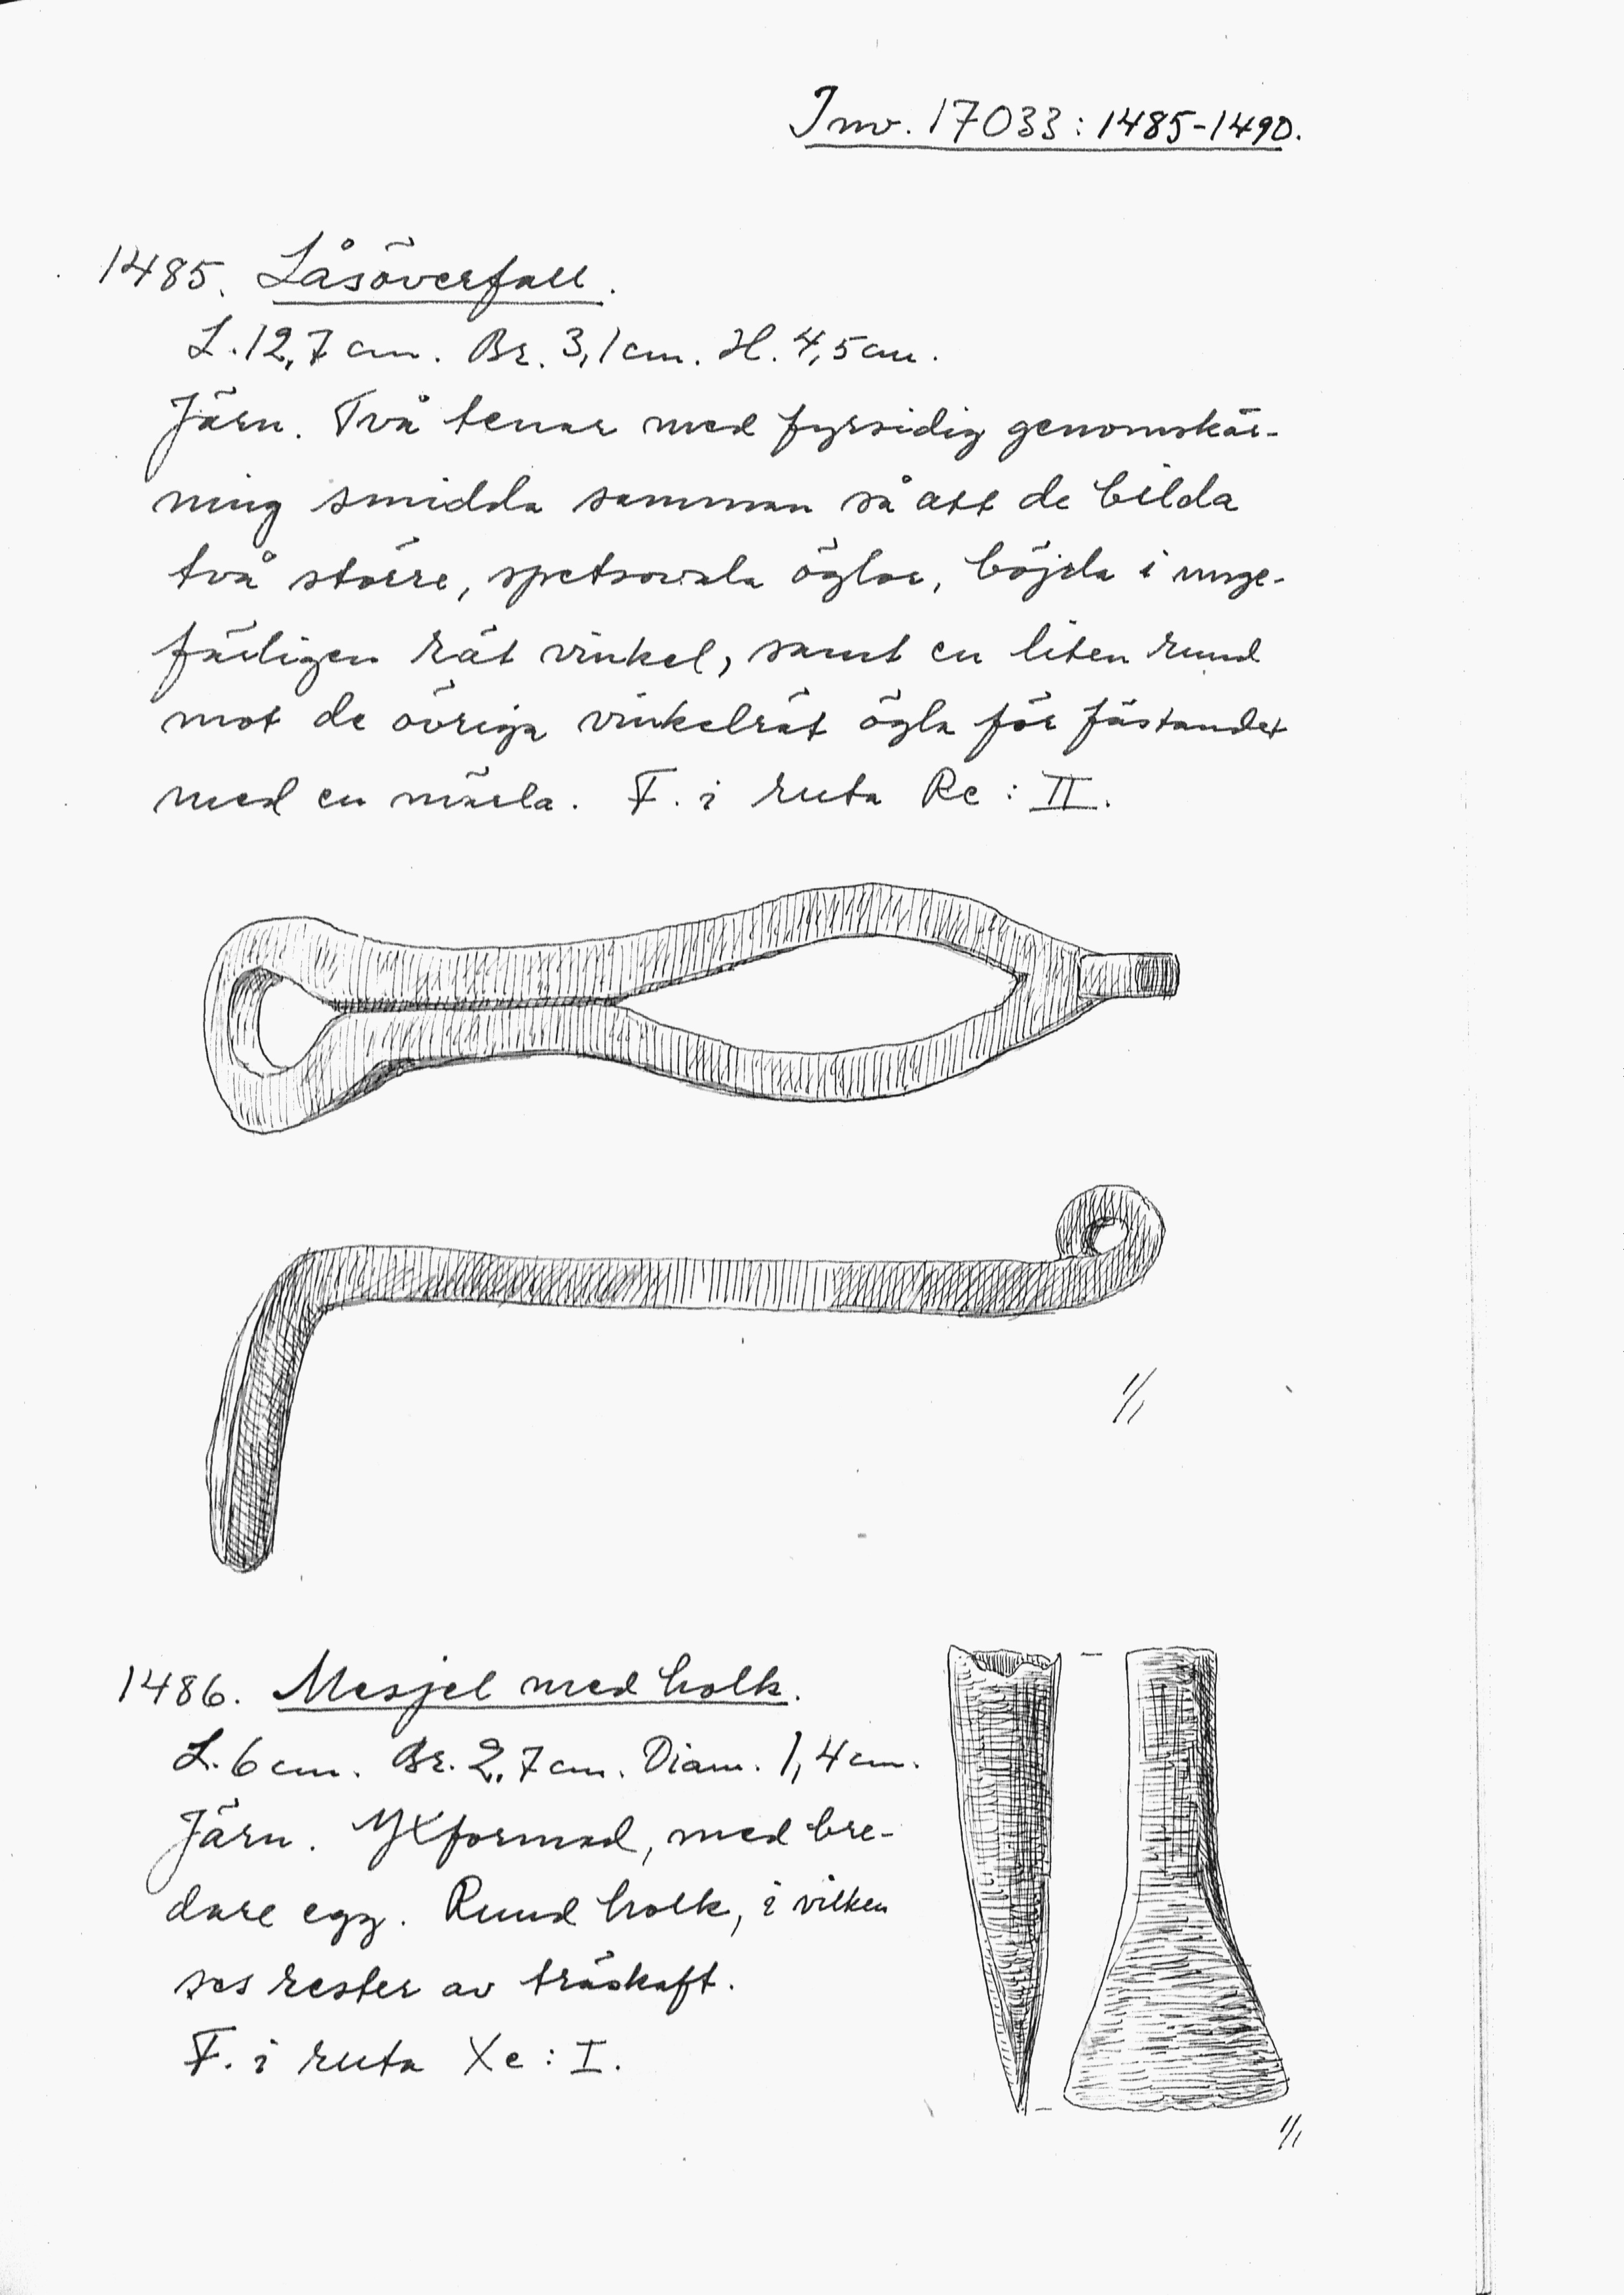 Inv. 17033:1485-1490.
1485. Låsöverfall.
L. 12,7 cm. Br. 3,1 cm. H. 4,5 cm.
Järn. Två tenar med fyrsidig genomskär-
ning smidda samman så att de bilda
två större, spetsovala öglor, böjda i unge-
färligen rät vinkel, samt en liten rund
mot de övriga vinkelrät ögla för fästandet
med en märla. F. i ruta Rc: II.
1/1
1486. Mesjel med holk.
L. 6 cm. Br. 2,7 cm. Diam. 1,4 cm.
Järn. Yxformad, med bre-
dare egg. Rund holk, i vilken
ses rester av träskaft.
F. i ruta Xe: I.
1/1